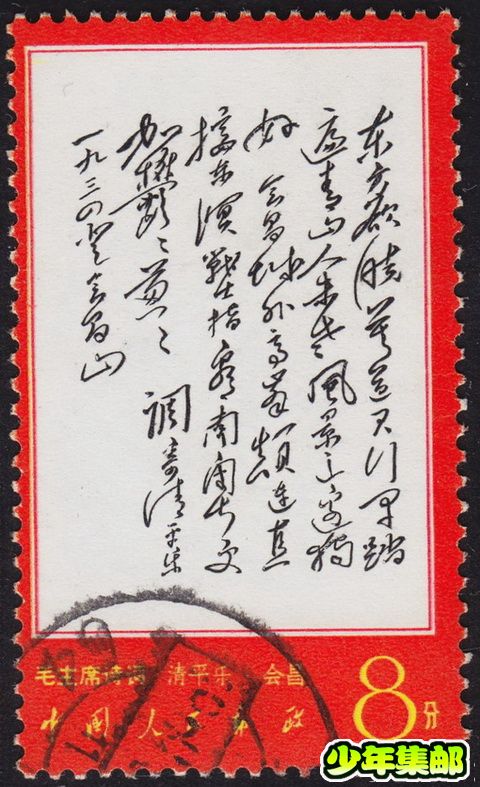 东方欲晓莫道君行早踏
遍青山人未老風景这边独
好 会昌城外高峯颠连直
接东溟戰士指看南粤更
加鬱々葱々 調寄清平乐
一九三四登会昌山
毛主席诗词 清平乐 会昌
中国人民邮政
8分
少年集邮